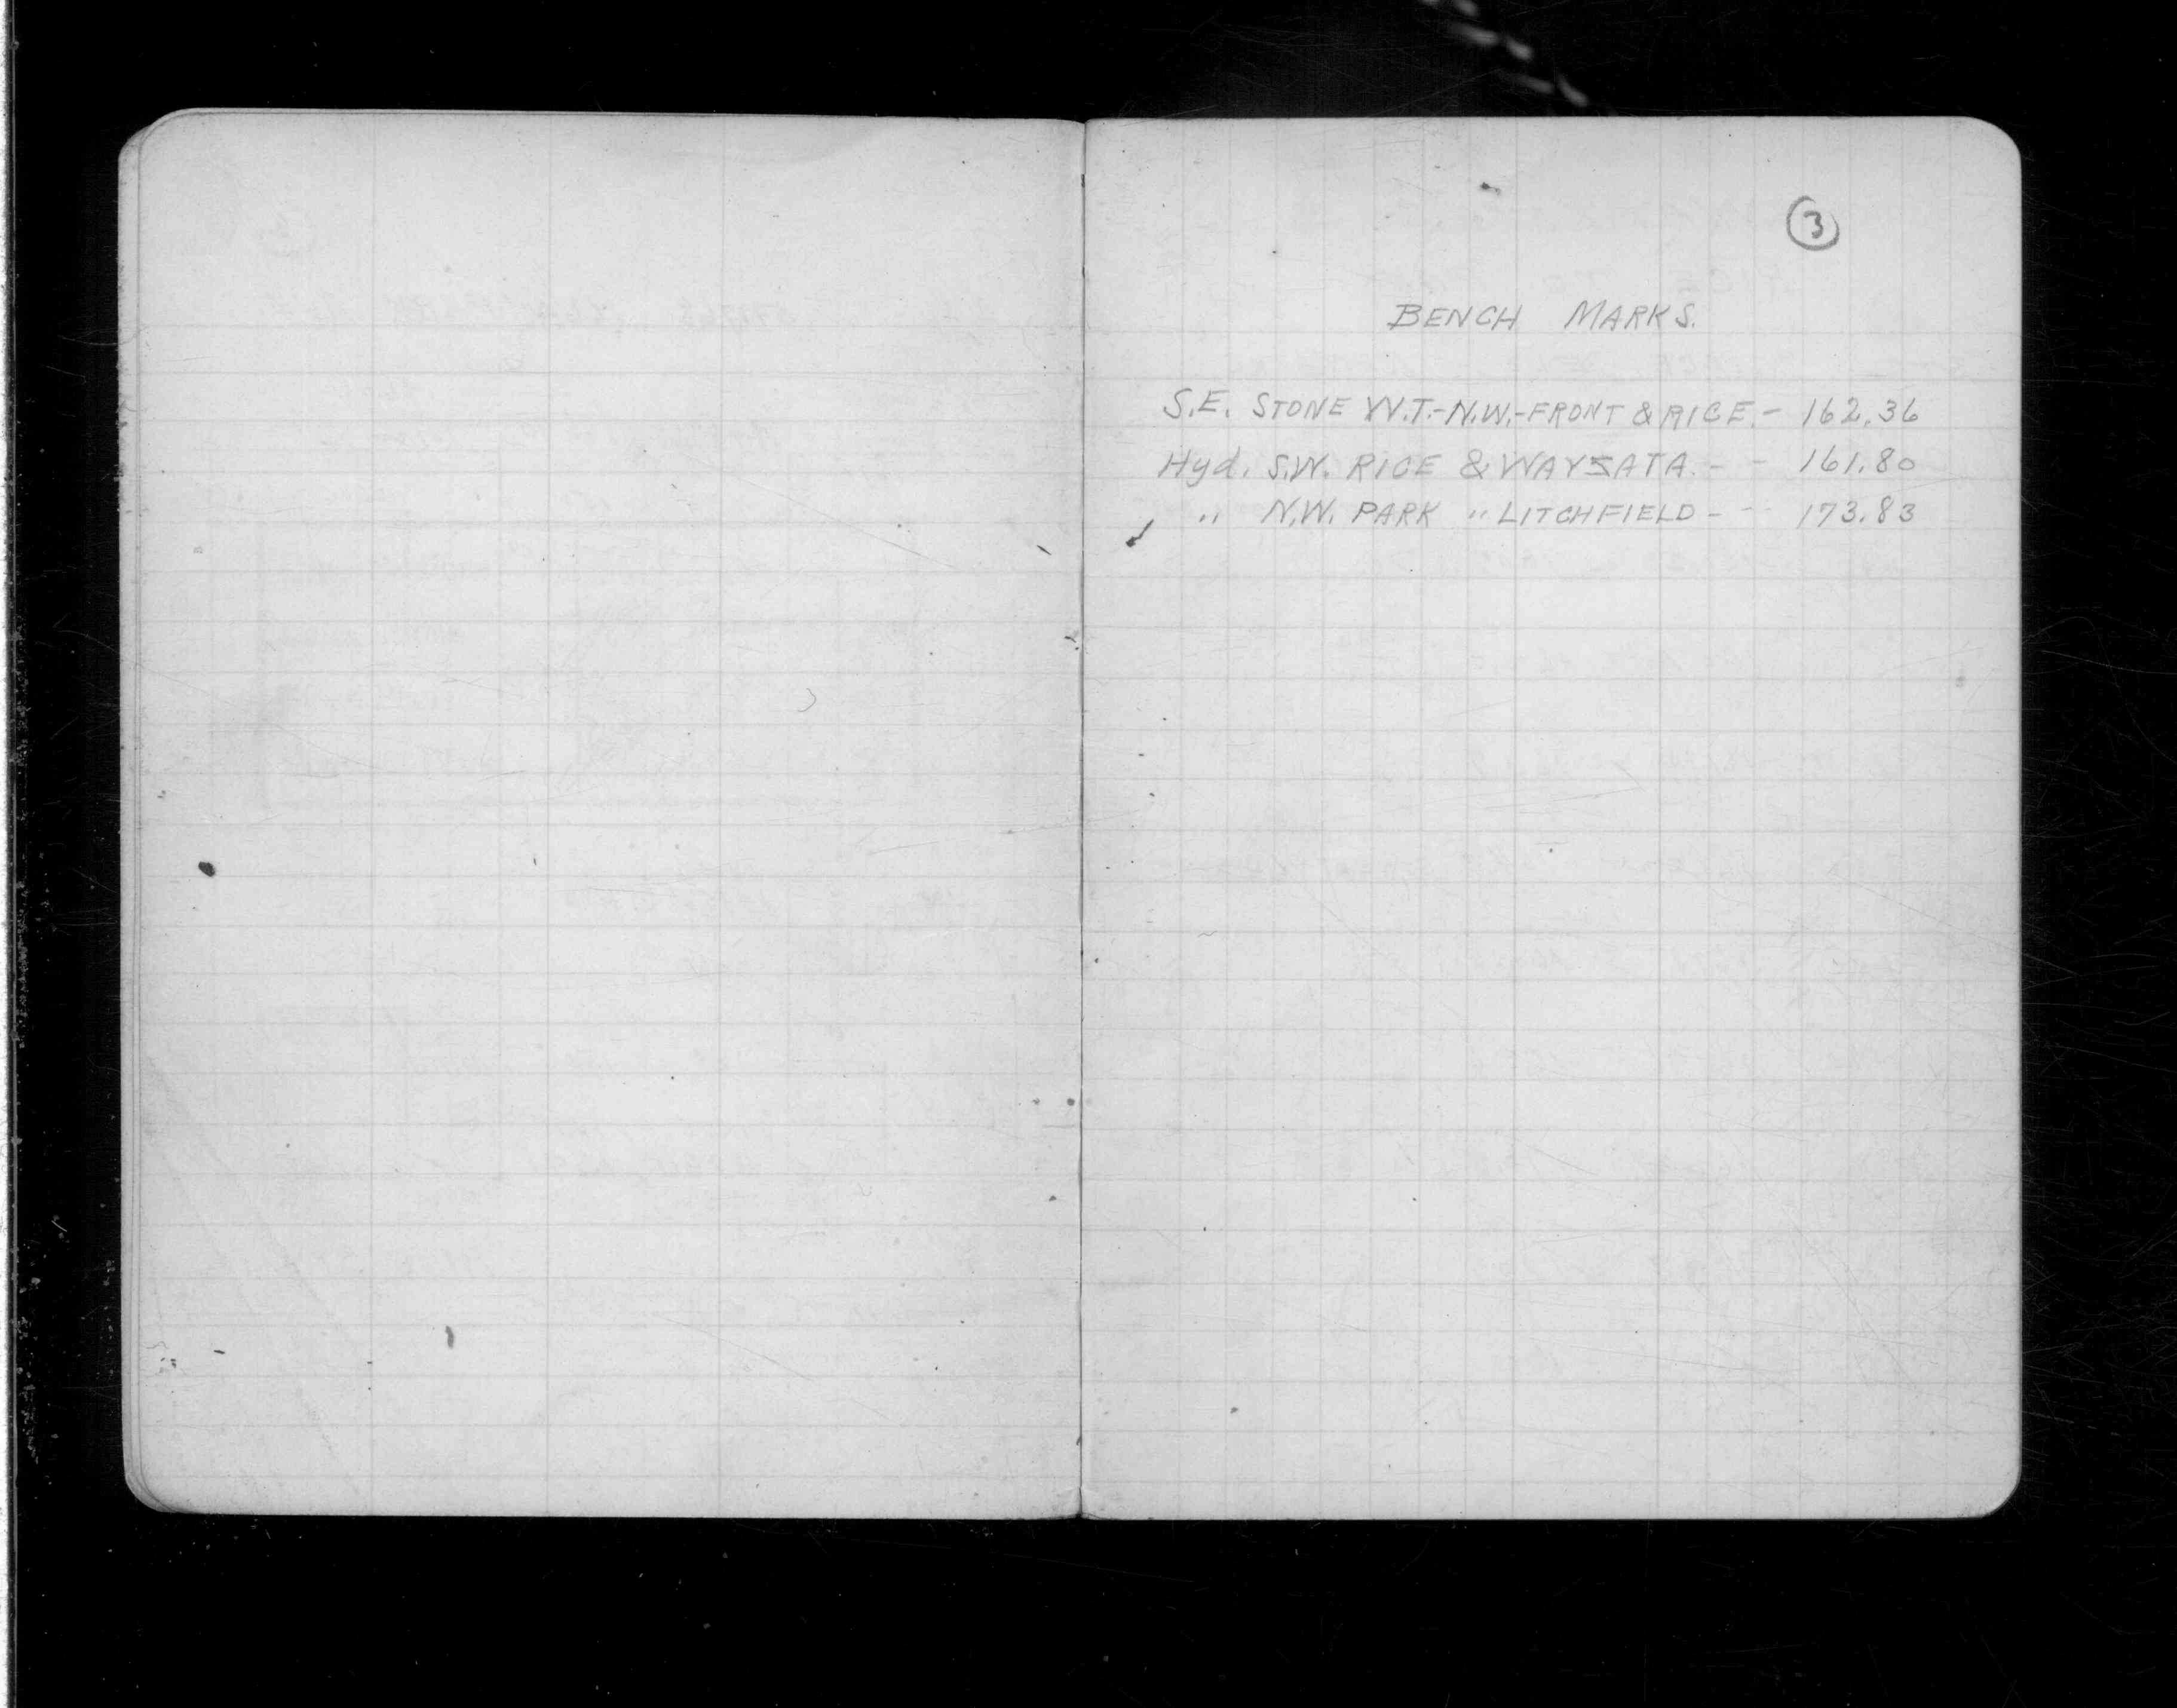 3
BENCH MARKS.
S.E. STONE W.T.-N.W.-FRONT & RICE.- 162.36
Hyd. S.W. RICE & WAYZATA. - - 161.80
" N.W. PARK " LITCHFIELD - - - 173.83